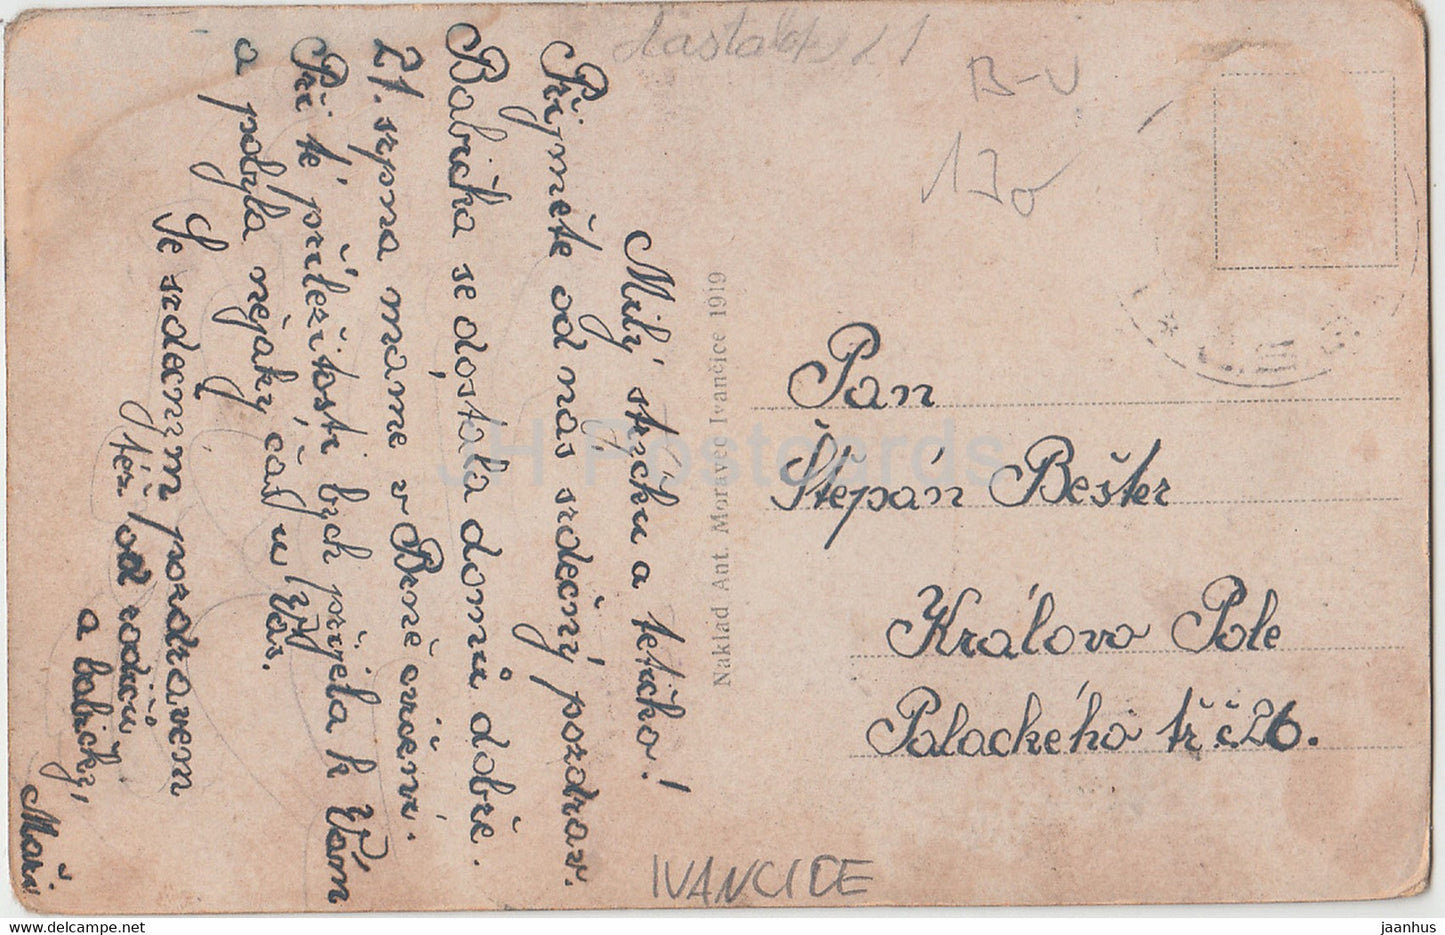 Milý strýčku a tetičko!
Přijměte od nás srdečný pozdrav.
Babička se dostala domů dobře.
21. srpna máme v Brně cvičení.
Při té příležitosti bych přijela k Vám
a pobyla nějaký čas u Vás.
Se srdečným pozdravem
též od rodičů
a babičky,
Maři
Naklad Ant. Moravec Ivančice 1919
B-U
170
Pan
Štěpán Bešter
Královo Pole
Palackého tř č. 26.
IVANCICE
JH Postcards
jaanhus ecrater.com